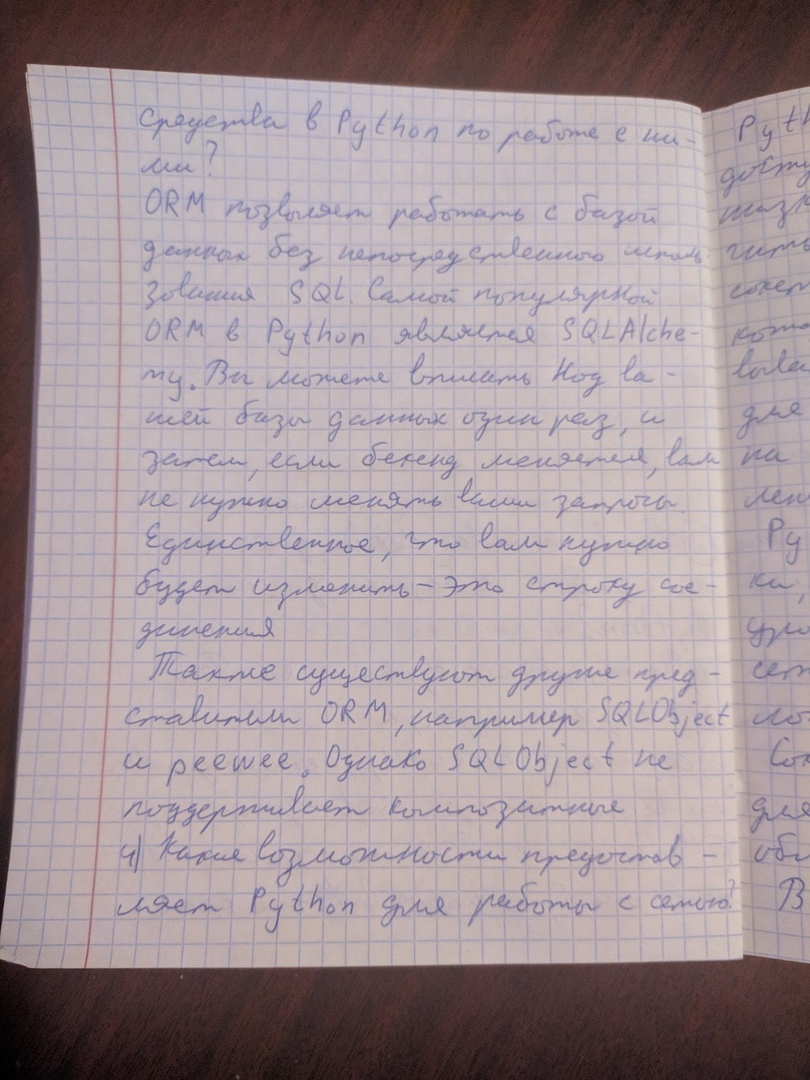 средства в Python по работе с ни-
ми?
ORM позволяет работать с базой
данных без непосредственного исполь
зования SQL. Самой популярной
ORM в Python является SQLAlche-
my. Вы можете вписать код ва-
шей базы данных один раз, и
затем, если бекенд меняется, вам
не нужно менять ваши запросы.
Единственное, что вам нужно
будет изменить - это строку сое-
динения
Также существуют другие пред-
ставители ORM, например SQLObject
и peewee. Однако SQLObject не
поддерживает композитные
4) Какие возможности предостав-
ляет Python для работы с сетью?
Pyth
для
на
Ру
ки,
для
В